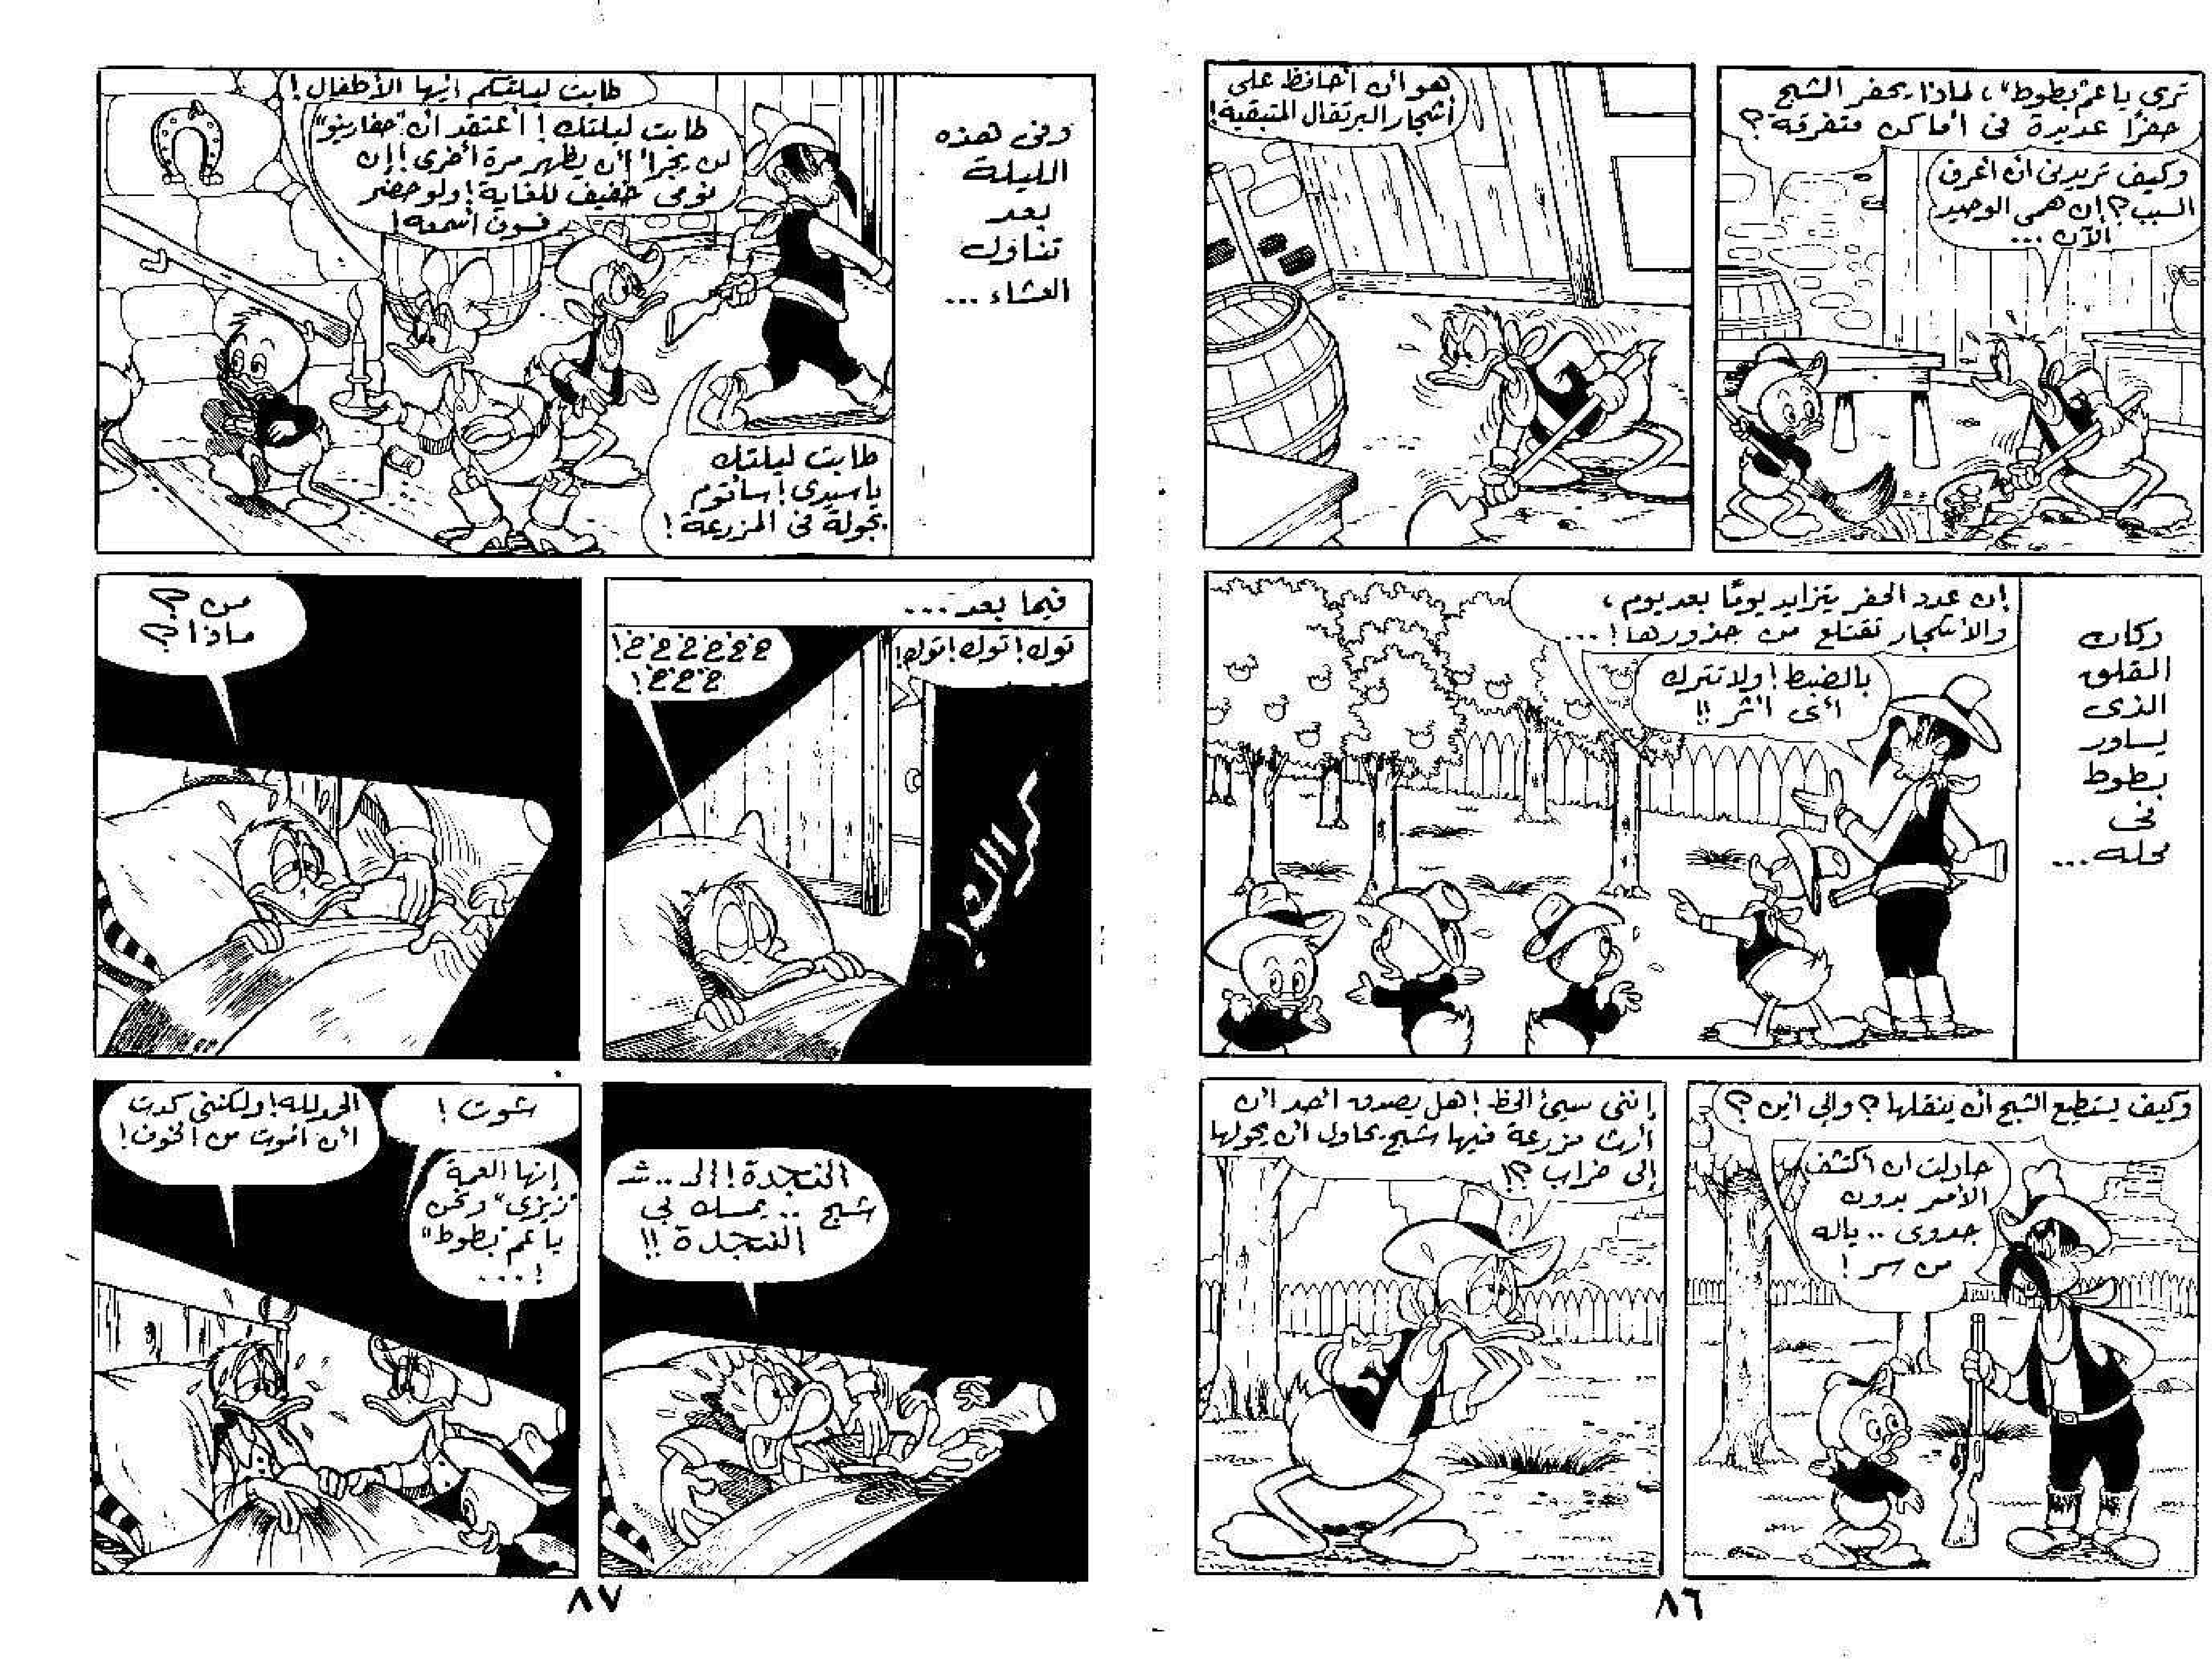 ترى يا عم "بطوط"، لماذا يحفر الشبح
حفرًا عديدة فى أماكن متفرقة؟
وكيف تريدنى أن أعرف
السبب؟ إن همى الوحيد
الآن ...
هو أن أحافظ على
أشجار البرتقال المتبقية!
وكان
القلق
الذى
يساور
بطوط
فى
محله ...
إن عدد الحفر يتزايد يومًا بعد يوم،
والأشجار تقتلع من جذورها! ...
بالضبط! ولا تترك
أى أثر!!
وكيف يستطيع الشبح أن ينقلها؟ وإلى أين؟
حاولت أن أكتشف
الأمر بدون
جدوى .. ياله
من سر!
إننى سيئ الحظ! هل يصدق أحد أن
أرث مزرعة فيها شبح يحاول أن يحولها
إلى خراب؟!
٨٦
وفى هذه
الليلة
بعد
تناول
العشاء ...
طابت ليلتكم أيها الأطفال!
طابت ليلتك! أعتقد أن "حفارينو"
لن يجرأ أن يظهر مرة أخرى! إن
نومى خفيف للغاية! ولو حضر
فسوف أسمعه!
طابت ليلتك
يا سيدى! سأقوم
بجولة فى المزرعة!
فيما بعد ...
توك! توك! توك!
خ خ خ خ خ خ!
خ خ خ!
كرااك!
من؟
ماذا؟
النجدة! الـ .. شـ
شبح .. يمسك بى
النجدة!!
شوت!
إنها العمة
"زيزى" ونحن
يا عم "بطوط"
! ...
الحمد لله! ولكننى كدت
أن أموت من الخوف!
٨٧